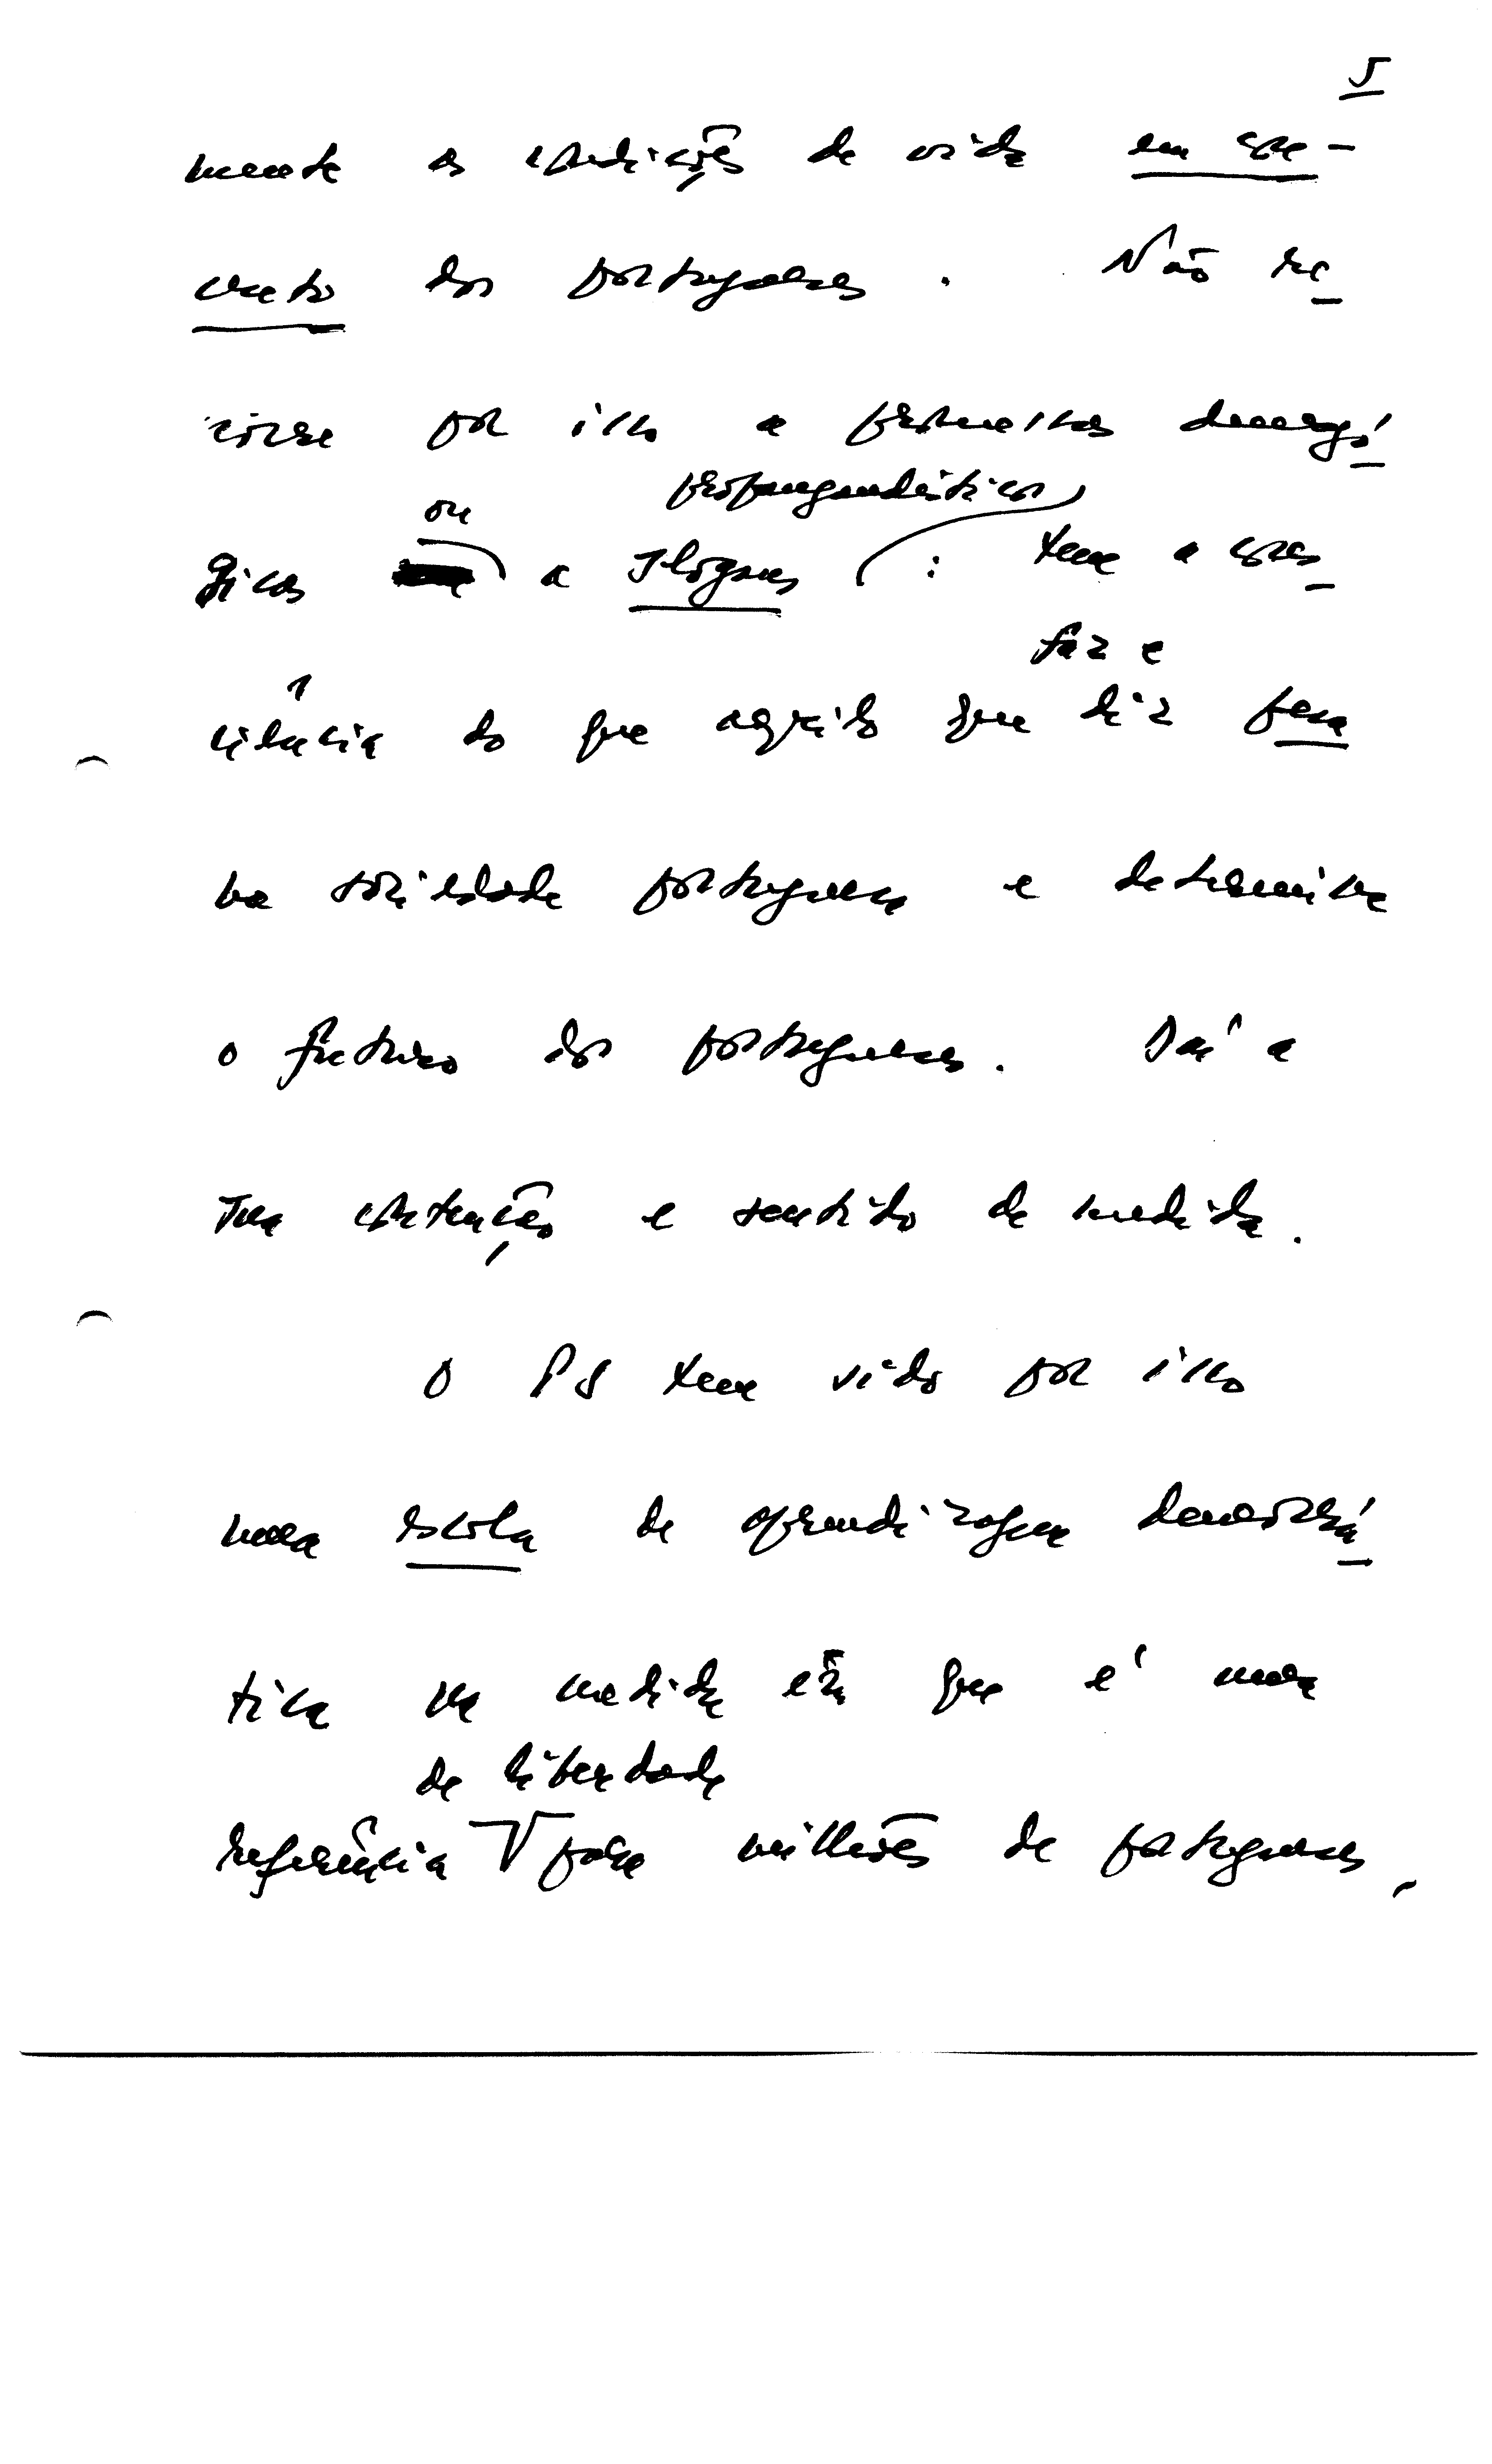 5
mente as condições de vida em con-
creto dos portugueses. Não re
corre por isso a promessas demagó
ou propagandísticos
gicas a slogans : tem a cons
faz e
ciência do que aquilo que diz pesa
na sociedade portuguesa e determina
o futuro dos portugueses. Daí a
sua contenção e sentido de medida.
O PS tem sido por isso
uma escola de aprendizagem democrá
tica na medida em que é uma
de liberdade
referência para milhões de portugueses,